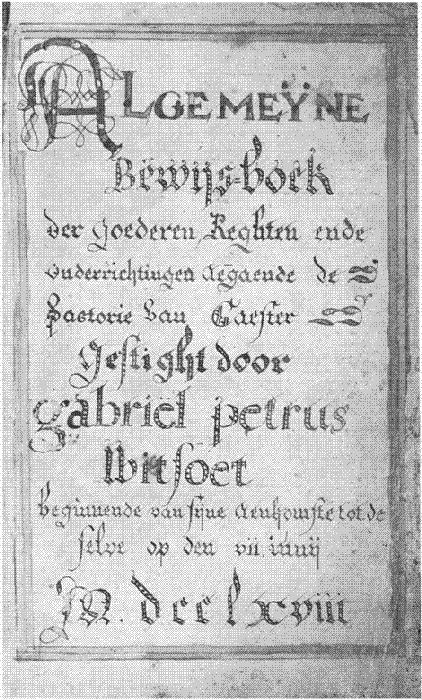 ALGEMEŸNE
Bewijs-boek
der goederen Reghten ende
onderrichtingen aegaende de
Pastorie Van Caester
Gestight door
gabriel petrus
Witsoet
beginnende van sijne aenkomste tot de
selve op den vii iunij
M. dcclxviii